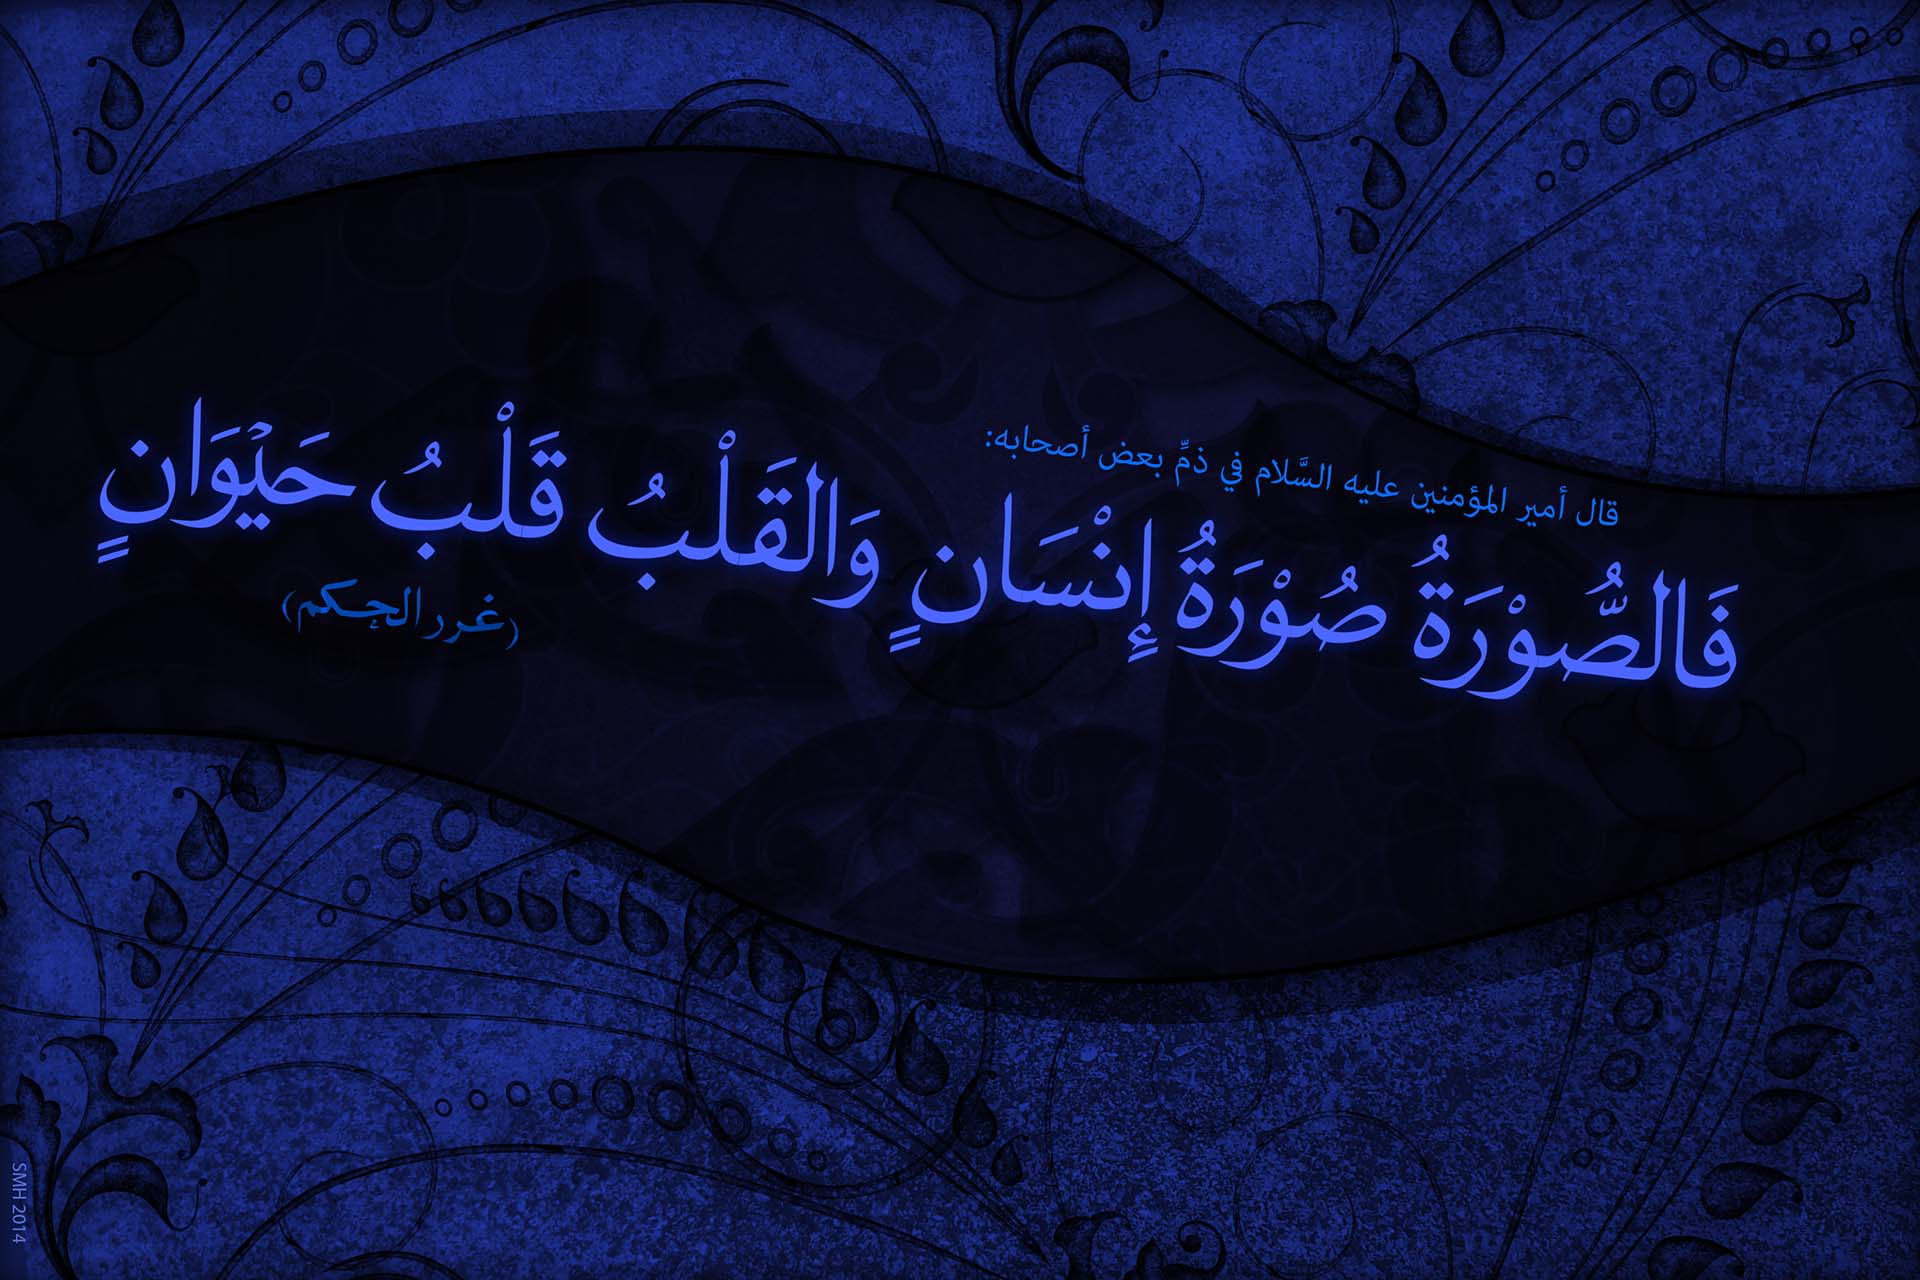 قال أمير المؤمنين عليه السَّلام في ذمِّ بعض أصحابه:
فَالصُّوْرَةُ صُوْرَةُ إِنْسَانٍ وَالقَلْبُ قَلْبُ حَيْوَانٍ
(غرر الحكم)
SMH 2014